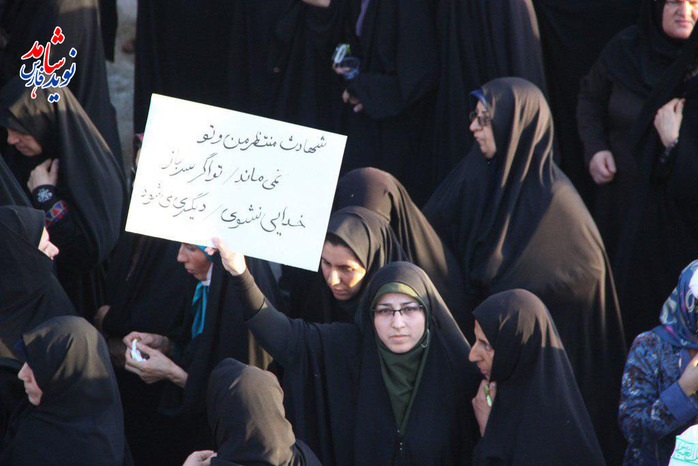 نوید شاهد
فارس
شهادت منتظر من و تو
نمی ماند/ تو اگر سرباز
خدایی نشوی/ دیگری می شود